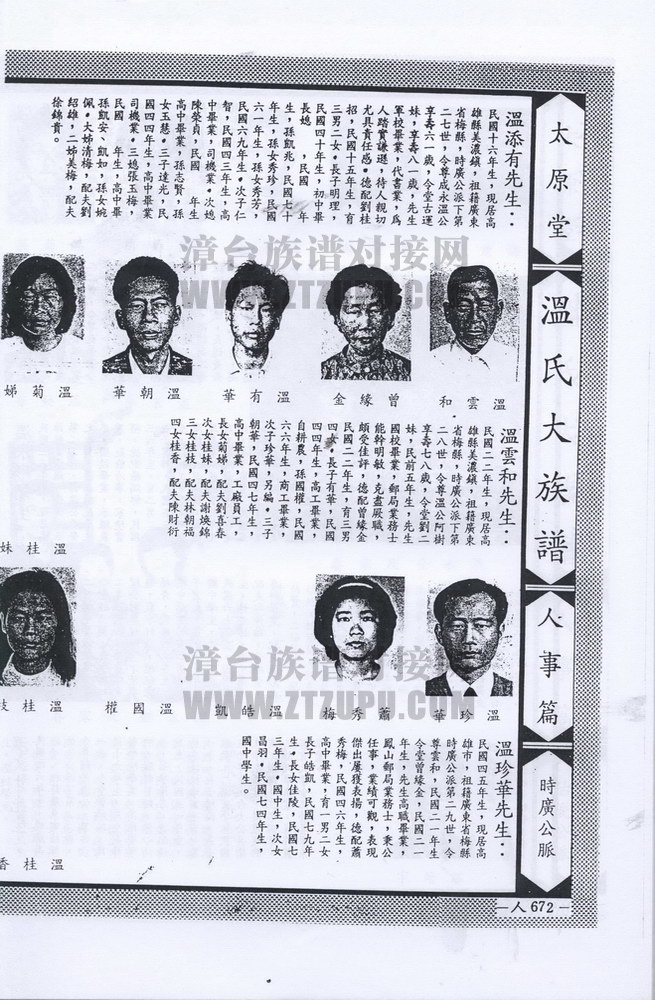 太原堂
溫氏大族譜
人事篇
時廣公脈
人672
溫添有先生：
民國十六年生，現居高
雄縣美濃鎮，祖籍廣東
省梅縣，時廣公派下第
二七世，令尊成永溫公
享壽六一歲，令堂古運
妹，享壽八一歲，先生
軍校畢業，代書業，為
人踏實謙遜，待人親切
尤具責任感。德配劉桂
招，民國十五年生，育
三男二女。長子明理，
民國四十年生，初中畢
長媳　，民國　年
生，孫凱兆，民國七十
年生，孫女秀珍，民國
六一年生，孫女秀芳，
民國六九年生。次子仁
智，民國四三年生，高
中畢業，司機業。次媳
陳榮貞，民國　年生
高中畢業，孫志賢，孫
女玉慧。三子達光，民
國四四年生，高中畢業
司機業。三媳張玉梅，
民國　年生，高中畢
孫凱安、凱如，孫女婉
佩。大姊清梅，配夫劉
紹雄，二姊美梅，配夫
徐錦貴。
溫雲和
曾緣金
溫有華
溫朝華
溫菊娣
溫雲和先生：
民國二二年生，現居高
雄縣美濃鎮，祖籍廣東
省梅縣，時廣公派下第
二八世，令尊溫公阿樹
享壽七八歲，令堂劉二
妹，民前五年生，先生
國校畢業，郵局業務士
能幹明敏，克盡厥職，
頗受佳評，德配曾緣金
民國二二年生，育三男
四女。長子有華，民國
四四年生，高工畢業，
自耕農，孫國權，民國
六六年生，商工畢業，
次子珍華，另編。三子
朝華，民國四七年生，
高中畢業，工廠員工，
長女菊娣，配夫劉喜春
次女桂妹，配夫謝煥錦
三女桂枝，配夫林朝福
四女桂香，配夫陳財衍
溫桂妹
溫珍華
蕭秀梅
溫皓凱
溫國權
溫桂枝
溫珍華先生：
民國四五年生，現居高
雄市，祖籍廣東省梅縣
時廣公派第二九世，令
尊雲和，民國二一年生
令堂曾緣金，民國二一
年生，先生高職畢業，
鳳山郵局業務士，秉公
任事，業績可觀，表現
傑出屢獲表揚，德配蕭
秀梅，民國四六年生，
高中畢業，育一男二女
長子皓凱，民國七九年
生。長女佳陵，民國七
三年生，國中生，次女
昌羽。民國七四年生，
國中學生。
溫桂香
漳台族谱对接网
WWW.ZTZUPU.COM
漳台族谱对接网
WWW.ZTZUPU.COM